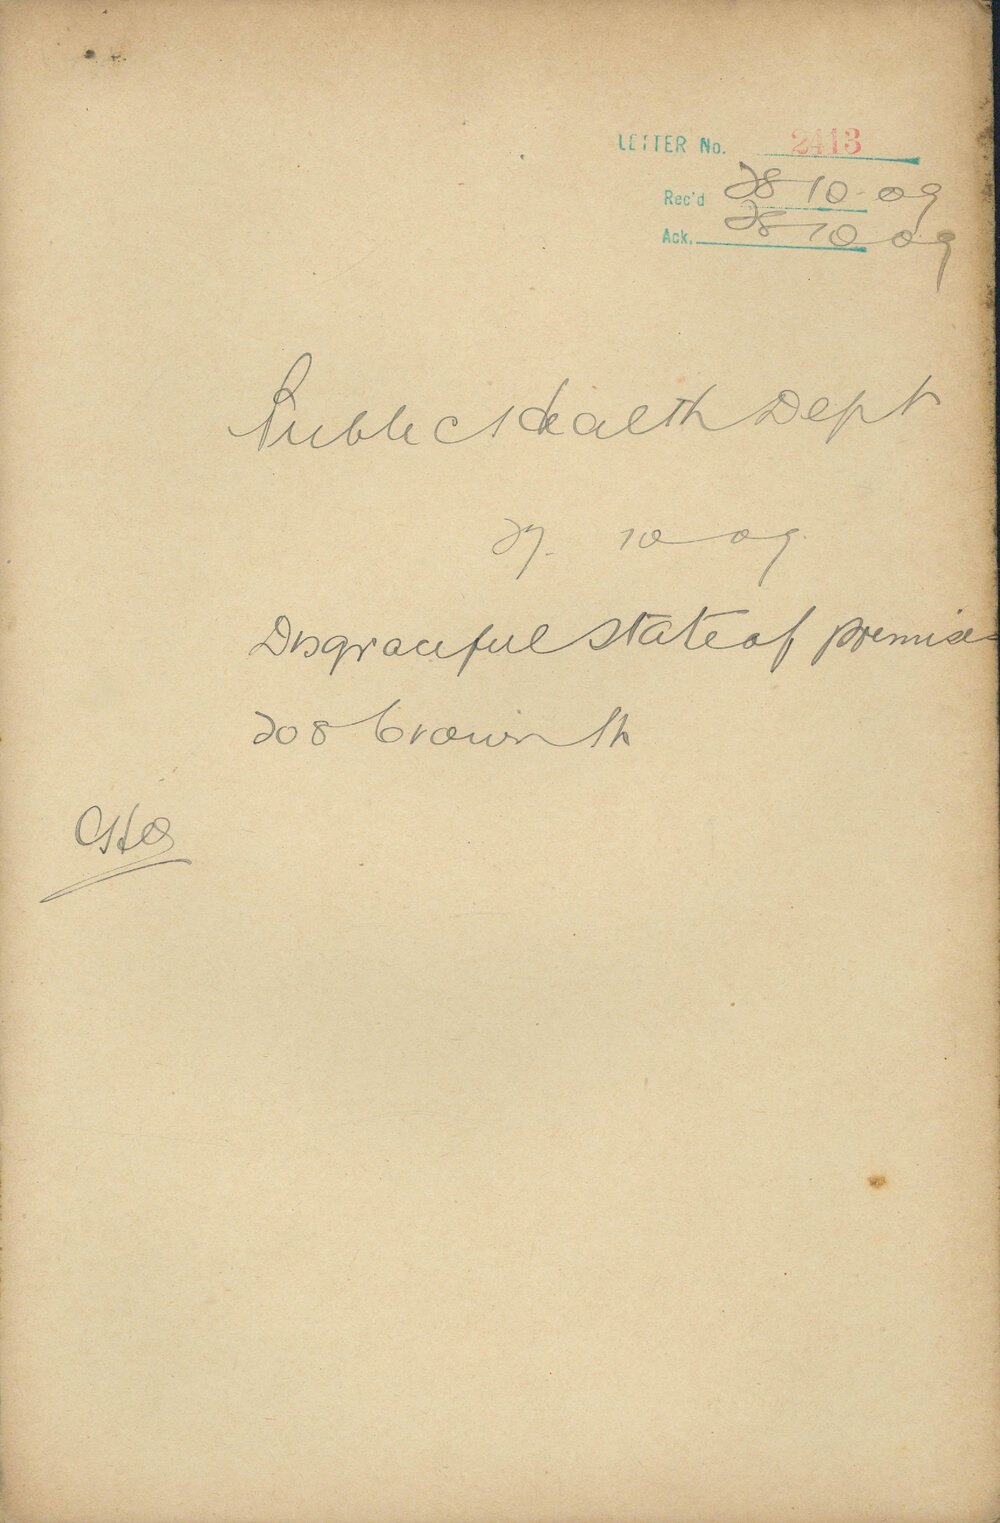 LETTER No. 2413
Rec'd 28 10 09
Ack. 28 10 09
Public Health Dept
27. 10 09
Disgraceful state of premises
208 Crown St
CHO